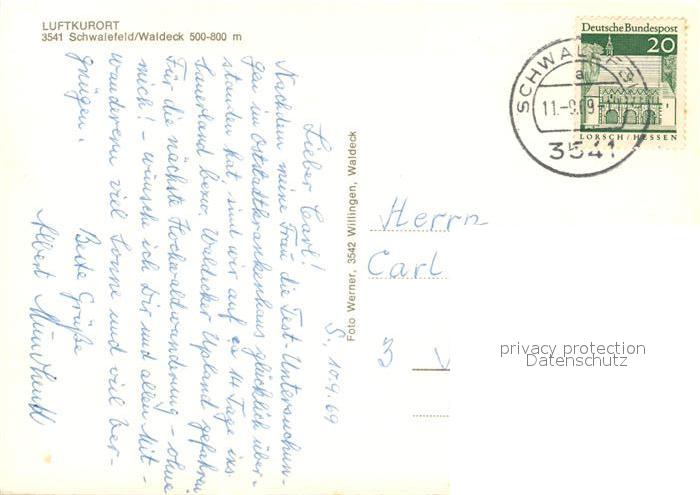 LUFTKURORT
3541 Schwalefeld/Waldeck 500-800 m
Deutsche Bundespost
20
LORSCH/HESSEN
SCHWALEFELD
a
11.-9.69
3541
S. 10.9.69
Lieber Carl!
Nachdem meine Frau die Test-Untersuchun-
gen im Oststadtkrankenhaus glücklich über-
standen hat, sind wir auf ca 14 Tage ins
Sauerland bezw. Waldecker Upland gefahren.
Für die nächste Hochwaldwanderung - ohne
mich! - wünsche ich Dir und allen Mit-
wanderern viel Sonne und viel Ver-
gnügen.
Beste Grüße
Albert
Foto Werner, 3542 Willingen, Waldeck
Herrn
Carl
3
privacy protection
Datenschutz